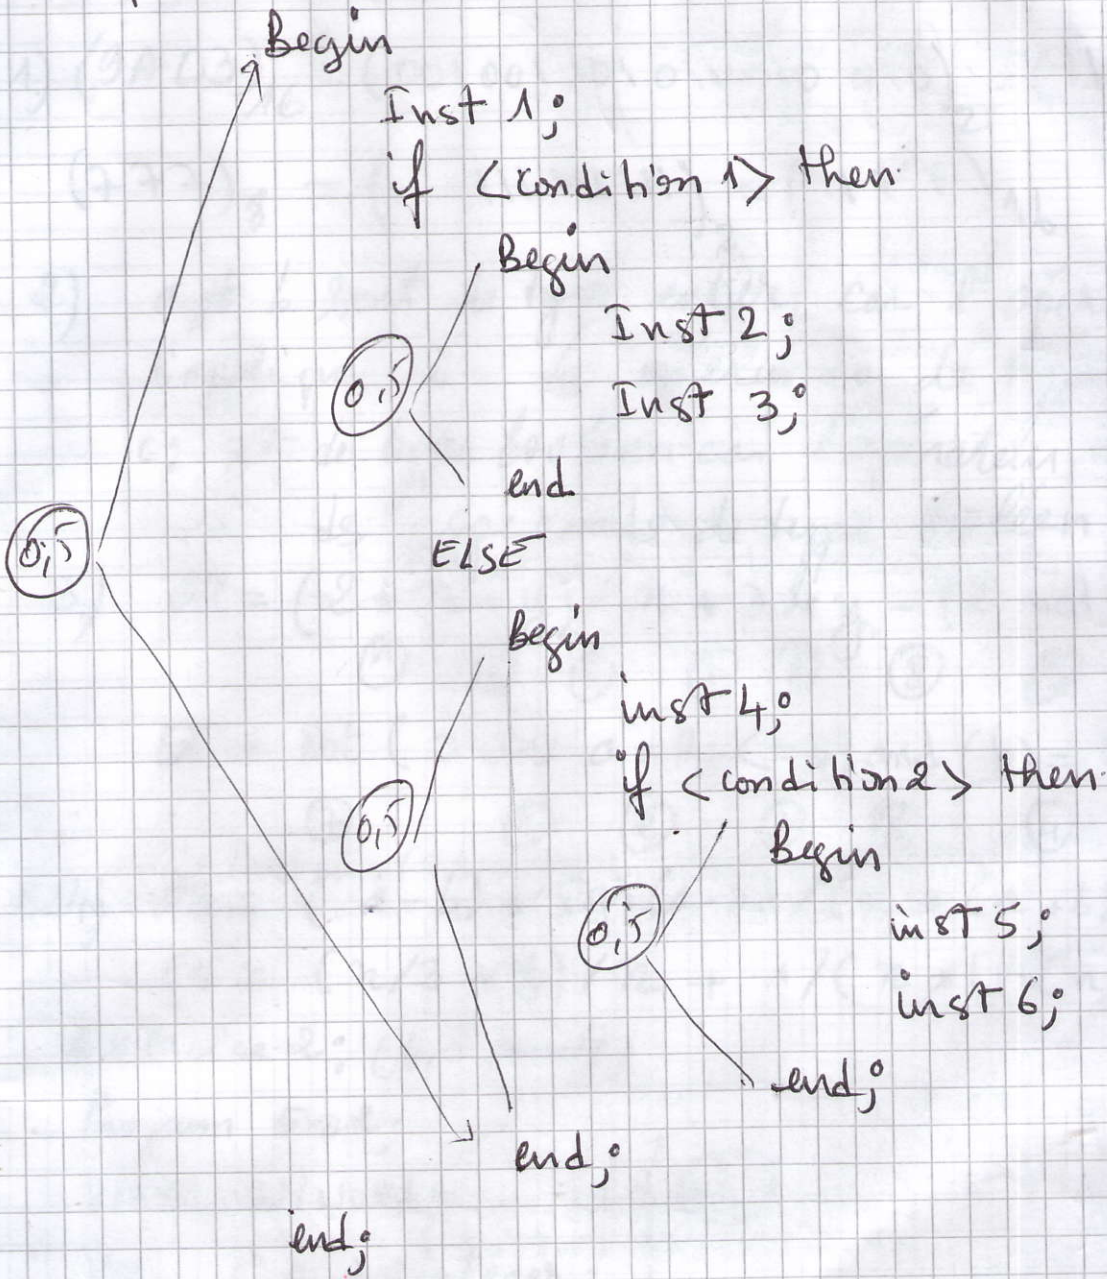 Begin
Inst 1;
if <condition 1> then
Begin
Inst 2;
0,5
Inst 3;
end
0,5
ELSE
Begin
inst 4;
if <condition 2> then
0,5
Begin
0,5
inst 5;
inst 6;
end;
end;
end;